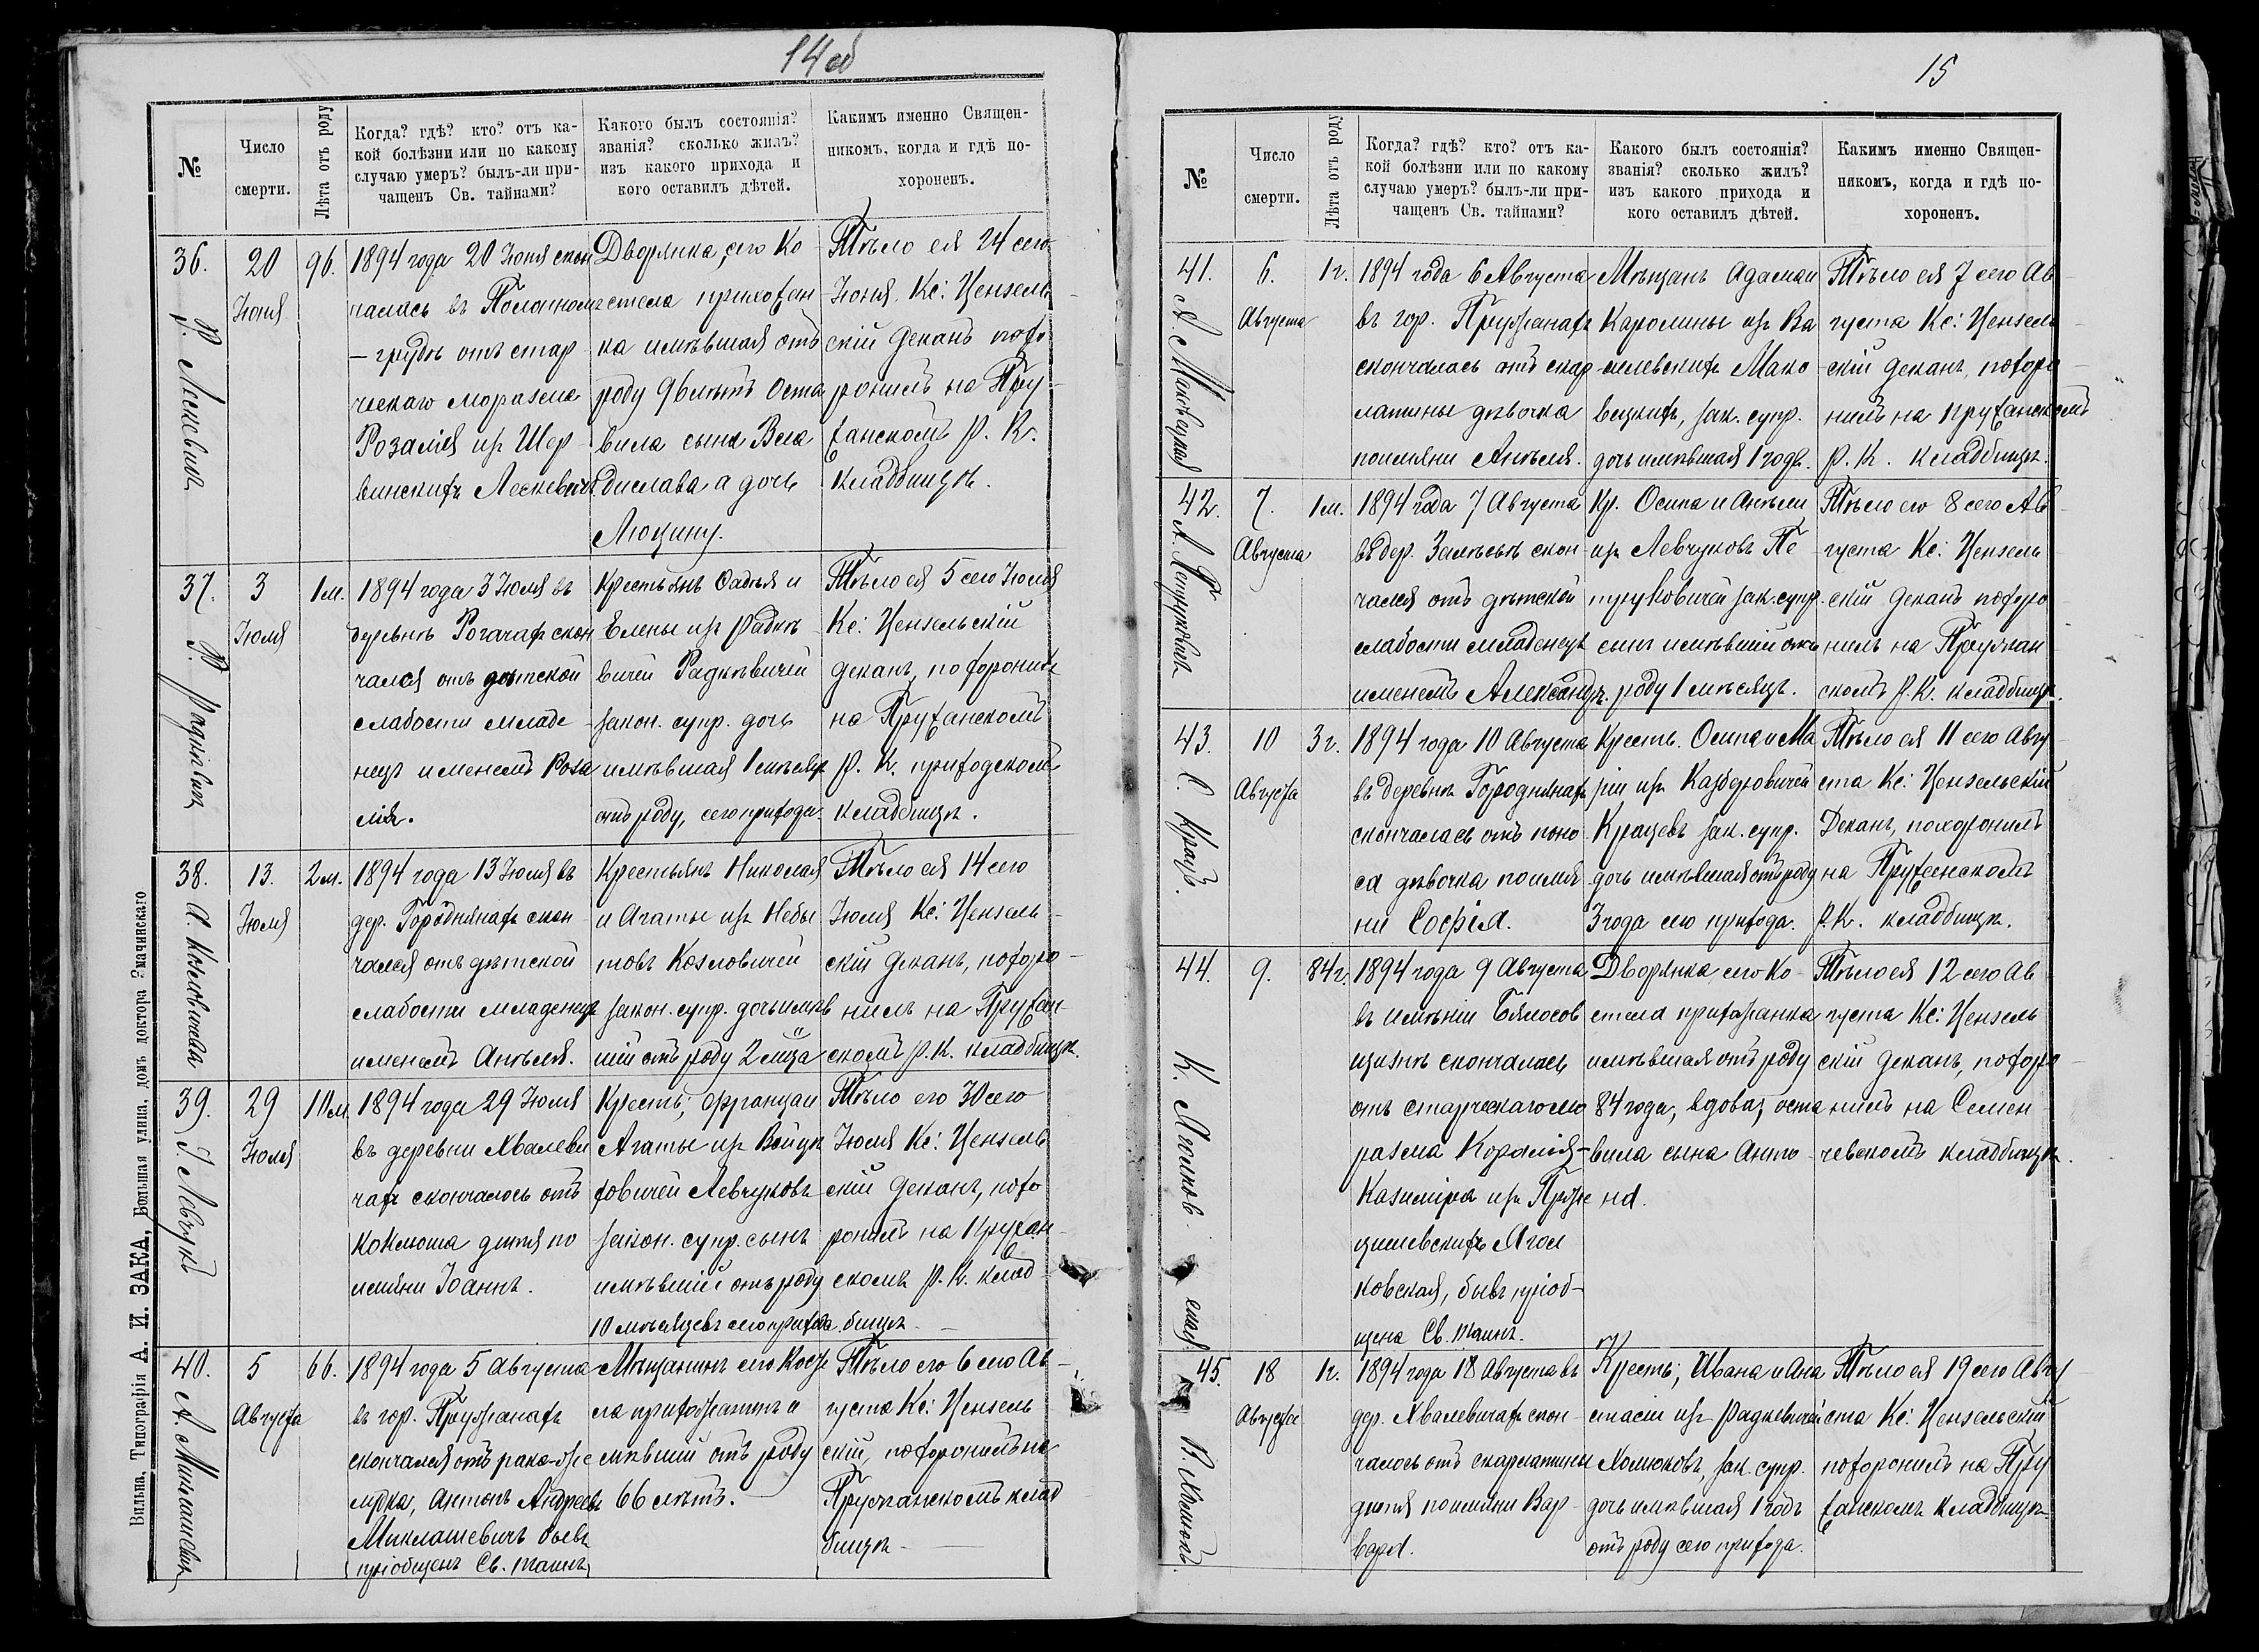 14 об
№
Число
смерти.
Лѣта отъ роду
Когда? гдѣ? кто? отъ ка-
кой болѣзни или по какому
случаю умеръ? былъ-ли при-
чащенъ Св. тайнами?
Какого былъ состоянія?
званія? сколько жилъ?
изъ какого прихода и
кого оставилъ дѣтей.
Какимъ именно Священ-
никомъ, когда и гдѣ по-
хороненъ.
36.
Р. Лескевичъ
20
Іюня
96.
1894 года 20 Іюня скон
чалась въ Полонном
- грудкѣ отъ стар
ческаго моразма
Розалія изъ Шер
винскихъ Лескевичъ
Дворянка, сего Ко
стела прихожан
ка имѣвшая отъ
роду 96 лѣтъ Оста
вила сына Вла
дислава а дочь
Люцину.
Тѣло ея 24 сего
Іюня, Кс: Цензель
скій деканъ похо
ронилъ на Пру-
жанскомъ Р. К.
кладбищѣ.
37.
Р. Радкѣвичъ
3
Іюля
1м.
1894 года 3 Іюля въ
деревнѣ Рогачахъ скон
чался отъ дѣтской
слабости младе
нецъ именемъ Роза
лія.
Крестьянъ Фадѣя и
Елены изъ Радкѣ
вичей Радкѣвичей
закон. супр. дочь
имѣвшая 1 мѣсяцъ
отъ роду, сего прихода.
Тѣло ея 5 сего Іюля
Кс: Цензельскій
деканъ, похоронилъ
на Пружанскомъ
Р. К. приходскомъ
кладбищѣ.
38.
А. Козловичовна
13.
Іюля
2м.
1894 года 13 Іюля въ
дер. Городнянахъ скон
чался отъ дѣтской
слабости младенецъ
именемъ Анѣля.
Крестьянъ Николая
и Агаты изъ Небы
товъ Козловичей
закон. супр. дочь имѣв
шій отъ роду 2 м-ца
Тѣло ея 14 сего
Іюля Кс: Цензель-
скій деканъ, похоро-
нилъ на Пружан-
скомъ Р. К. кладбищѣ.
39.
І. Левчукъ
29
Іюля
10м.
1894 года 29 Іюля
въ деревни Хвалеви
чахъ скончалось отъ
коклюша дитя по
имяни Іоаннъ.
Крестьˌ Францаи
Агаты изъ Войцѣ
ховичей Левчуковъ
закон. супр. сынъ
имѣвшій отъ роду
10 мѣсяцевъ сего прихода
Тѣло его 30 сего
Іюля Кс: Цензель
скій деканъ, похо
ронилъ на Пружан-
скомъ Р. К. клад-
бищѣ.
40.
А. Миклашевичъ
5
Августа
66.
1894 года 5 Августа
въ гор. Пружанахъ
скончался отъ рака-же
лудка, Антонъ Андреевъ
Миклашевичъ бывъ
пріобщенъ Св. таинъ
Мѣщанинъ сего Косте
ла прихожанинъ и
мѣвшій отъ роду
66 лѣтъ.
Тѣло его 6 сего Ав-
густа Кс: Цензель
скій, похоронилъ на
Пружанскомъ клад
бищѣ
Вильна, Типографія А. И. ЗАКА, Большая улица, домъ доктора Змачинскаго
15
№
Число
смерти.
Лѣта отъ роду
Когда? гдѣ? кто? отъ ка-
кой болѣзни или по какому
случаю умеръ? былъ-ли при-
чащенъ Св. тайнами?
Какого былъ состоянія?
званія? сколько жилъ?
изъ какого прихода и
кого оставилъ дѣтей.
Какимъ именно Священ-
никомъ, когда и гдѣ по-
хороненъ.
41.
А. Маковецкая
6.
Августа
1г.
1894 года 6 Августа
въ гор. Пружанахъ
скончалась отъ скар
латины дѣвочка
поимяни Анѣля.
Мѣщанъ Адамаи
Каролины изъ Ва
силевскихъ Мако
вецкихъ, зак. супр.
дочь имѣвшая 1 года.
Тѣло ея 7 сего Ав
густа Кс: Цензель
скій деканъ, похоро
нилъ на Пружанскомъ
Р. К. кладбищѣ.
42.
А. Петуковичъ
7.
Августа
1м.
1894 года 7 Августа
въ дер. Залѣсьѣ скон
чался отъ дѣтской
слабости младенецъ
именемъ Александръ.
Кр. Осипа и Анѣли
изъ Левчуковъ Пе
туковичей зак. супр.
сынъ имѣвшій отъ
роду 1 мѣсяцъ.
Тѣло его 8 сего Ав
густа Кс: Цензель
скій деканъ похоро
нилъ на Пружан
скомъ Р. К. кладбищѣ.
43.
С. Крацъ.
10
Августа
3г.
1894 года 10 Августа
въ деревнѣ Городнянахъ
скончалась отъ поно
са дѣвочка поимя
ни Софія.
Кресть. Осипа и Ма
ріи изъ Каздзюковичей
Крацевъ зак. супр.
дочь имѣвшая отъ роду
3 года сего прихода.
Тѣло ея 11 сего Авгу
ста Кс: Цензельскій
Деканъ, похоронилъ
на Пружанскомъ
Р. К. кладбищѣ.
44.
К. Яголков-
ская
9.
84г.
1894 года 9 Августа
въ имѣніи Бѣлосов
щизнѣ скончалась
отъ старческаго мо
разма Королія-
Казиміра изъ Прже
цишевскихъ Ягол
ковская, бывъ пріоб-
щена Св. таинъ.
Дворянка сего Ко
стела прихожанка
имѣвшая отъ роду
84 года, вдова, оста
вила сына Анто
на.
Тѣло ея 12 сего Ав
густа Кс: Цензель
скій деканъ, похоро
нилъ на Семен
чевскомъ кладбищѣ.
45.
В. Хомюкъ
18
Августа
1г.
1894 года 18 Августа въ
дер. Хвалевичахъ скон
чалось отъ скарлатины
дитя поимяни Вар
вара.
Крестьˌ Ивана и Ана
стасіи изъ Радкевичей
Хомюковъ, зак. супр.
дочь имѣвшая 1 годъ
отъ роду сего прихода.
Тѣло ея 19 сего Авгу
ста Кс: Цензельскій
похоронилъ на Пру
жанскомъ кладбищѣ.